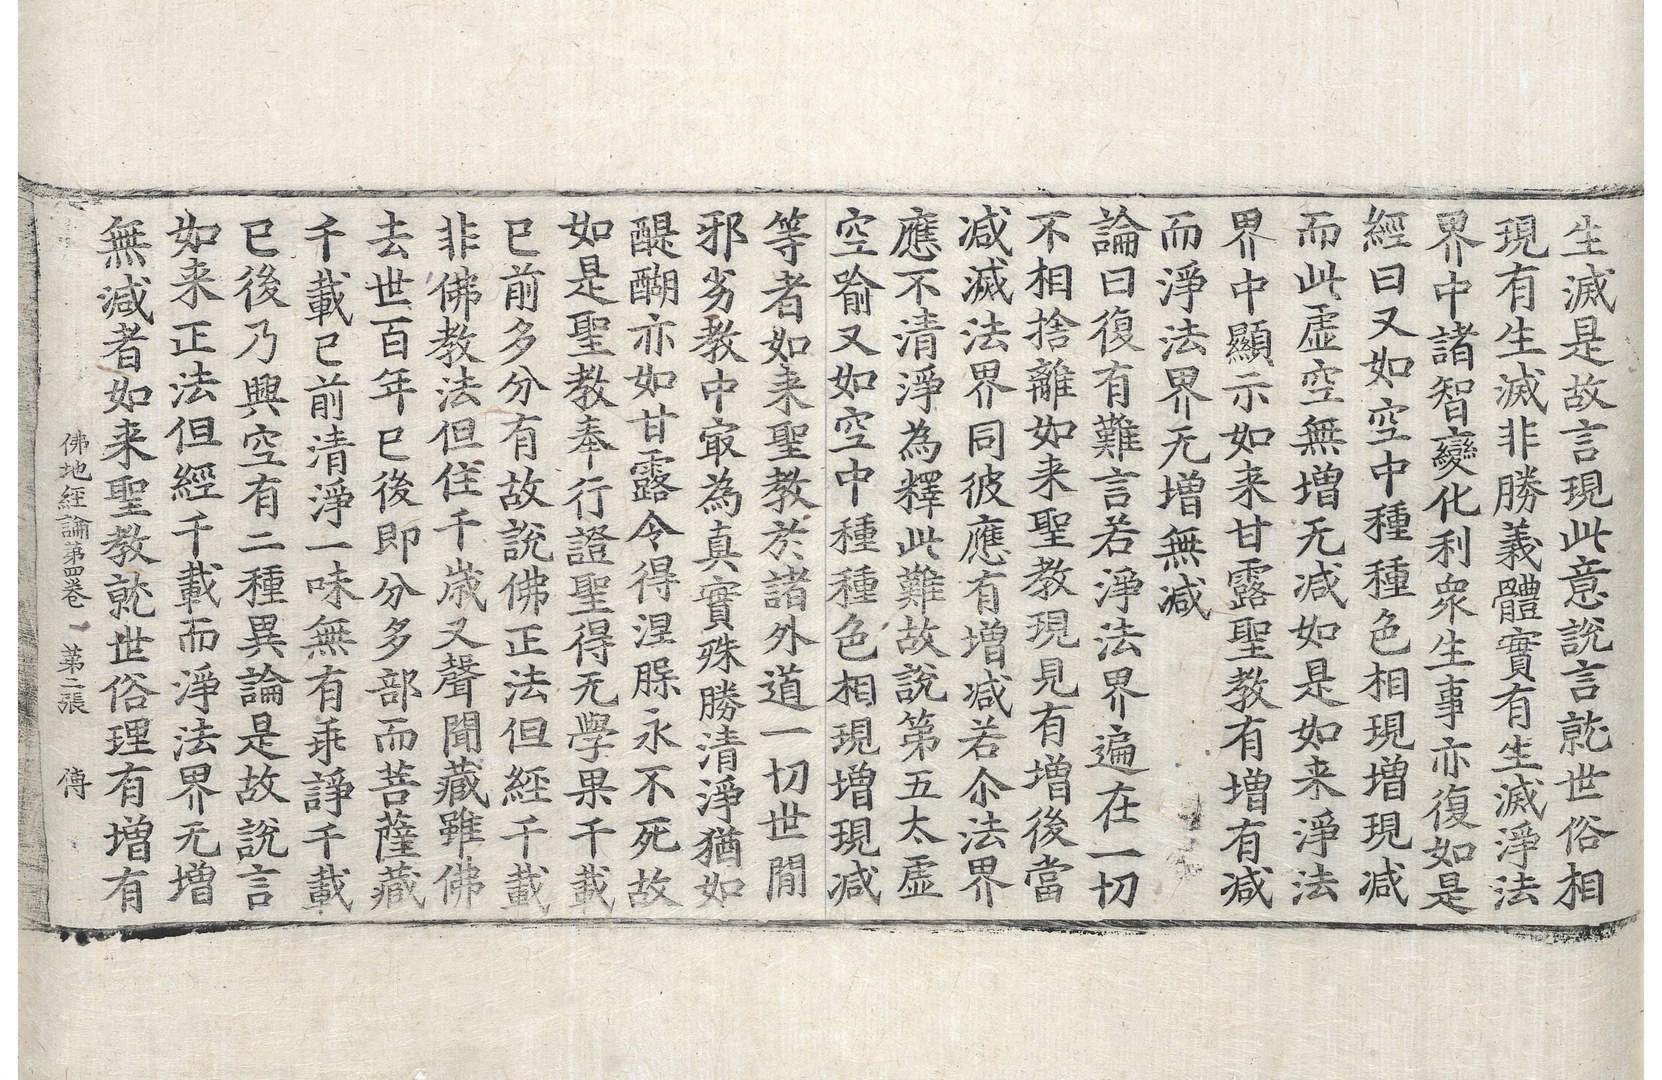 生滅是故言現此意說言就世俗相
現有生滅非勝義體實有生滅淨法
界中諸智變化利衆生事亦復如是
經曰又如空中種種色相現增現減
而此虛空無增无減如是如来淨法
界中顯示如来甘露聖教有增有減
而淨法界无增無減
論曰復有難言若淨法界遍在一切
不相捨離如来聖教現見有增後當
減滅法界同彼應有增減若尒法界
應不清淨為釋此難故說第五太虛
空喻又如空中種種色相現增現減
等者如来聖教於諸外道一切世間
邪劣教中㝡為真實殊勝清淨猶如
醍醐亦如甘露令得涅槃永不死故
如是聖教奉行證聖得无學果千載
已前多分有故說佛正法但經千載
非佛教法但住千歲又聲聞藏雖佛
去世百年已後即分多部而菩薩藏
千載已前清淨一味無有乖諍千載
已後乃興空有二種異論是故說言
如来正法但經千載而淨法界无增
無減者如来聖教就世俗理有增有
佛地經論第四卷 第二張 傅